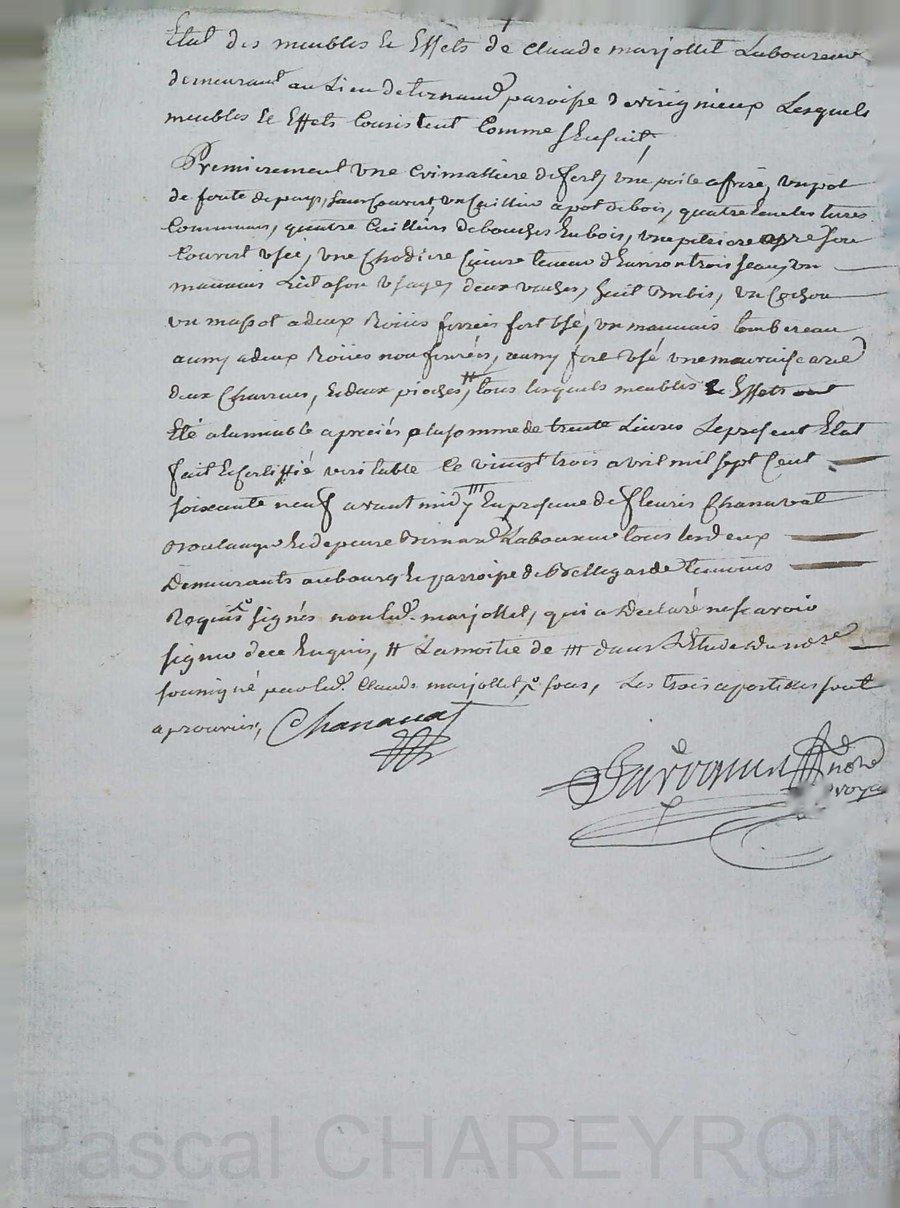 Etat des meubles Et Effets de Claude marjollet Laboureur
demeurant au Lieu de ternaud paroisse de virignieux Lesquels
meubles Et Effets Consistent Comme s'Ensuit,
Premierement une Crimalliere de fert, une poile a frire, un pot
de fonte de pays, sans Couvert, un Cuillier a pot de bois, quatre
Communes, quatre Cuilliers de bouches En bois, une petriere son
Couvert usée, une Chodiere Cuivre teneur d'Environ trois seaux, un
mauvais Lit a son usage, deux vaches, huit Brebis, un Cochon
un a deux Roües ferrées fort usé, un mauvais tombereau
aussy a deux Roües non ferrées, aussy fort usé une mauvaise
deux Charrues, Et deux pioches, # tous lesquels meubles Et Effets ont
Eté a lamiable apreciés a la somme de trente Livres Le present Etat
fait Et Certiffié veritable Ce vingt trois avril mil sept Cent
soixante neuf avant midy ttt En presence de fleuris Chanavat
Boulanger Et de pierre Bernard Laboureur tous les deux
Demeurants au bourg Et parroisse de Bellegarde temoins
Requis signés non led. marjollet, qui a Declaré ne scavoir
signer de ce Enquis, # La moitié de ttt dans L'Etude du nore
soussigné par led. Claude marjollet, Les trois apostilles sont
aprouvées, Chanavat
nore
royal
Pascal CHAREYRON